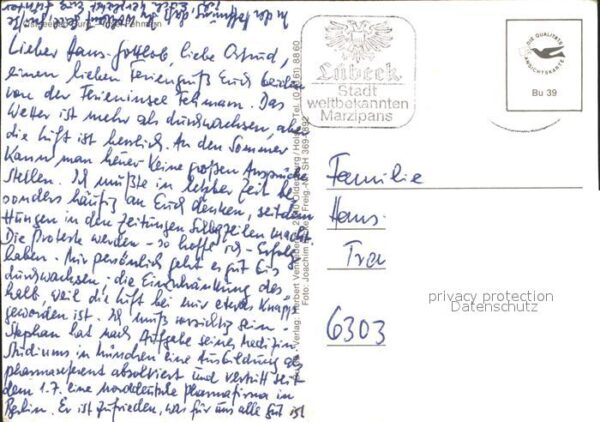 Lieber Hans-Gottlob, liebe Ostrud,
einen lieben Feriengruß Euch beiden
von der Ferieninsel Fehmarn. Das
Wetter ist mehr als durchwachsen, aber
die Luft ist herrlich. An den Sommer
kann man heuer keine großen Ansprüche
stellen. Ich mußte in letzter Zeit be-
sonders häufig an Euch denken, seitdem
in den Zeitungen Schlagzeilen macht.
Die Proteste werden - so hoffe ich - Erfolg
haben. Mir persönlich geht es gut bis
durchwachsen; die Einschränkung des-
halb, weil die Luft bei mir etwas knapp
geworden ist. Ich muß vorsichtig sein.
Stephan hat nach Aufgabe seines Medizin-
Studiums in München eine Ausbildung als
Pharmareferent absolviert und vertritt seit
dem 1.7. eine norddeutsche Pharmafirma in
Berlin. Er ist zufrieden, was für uns alle gut ist
In der Hoffnung, daß
Lübeck
Stadt
weltbekannten
Marzipans
DIE QUALITÄTS
ANSICHTSKARTE
Bu 39
Verlag: Herbert
Foto: Joachim
Familie
Hans-
Tra
6303
privacy protection
Datenschutz